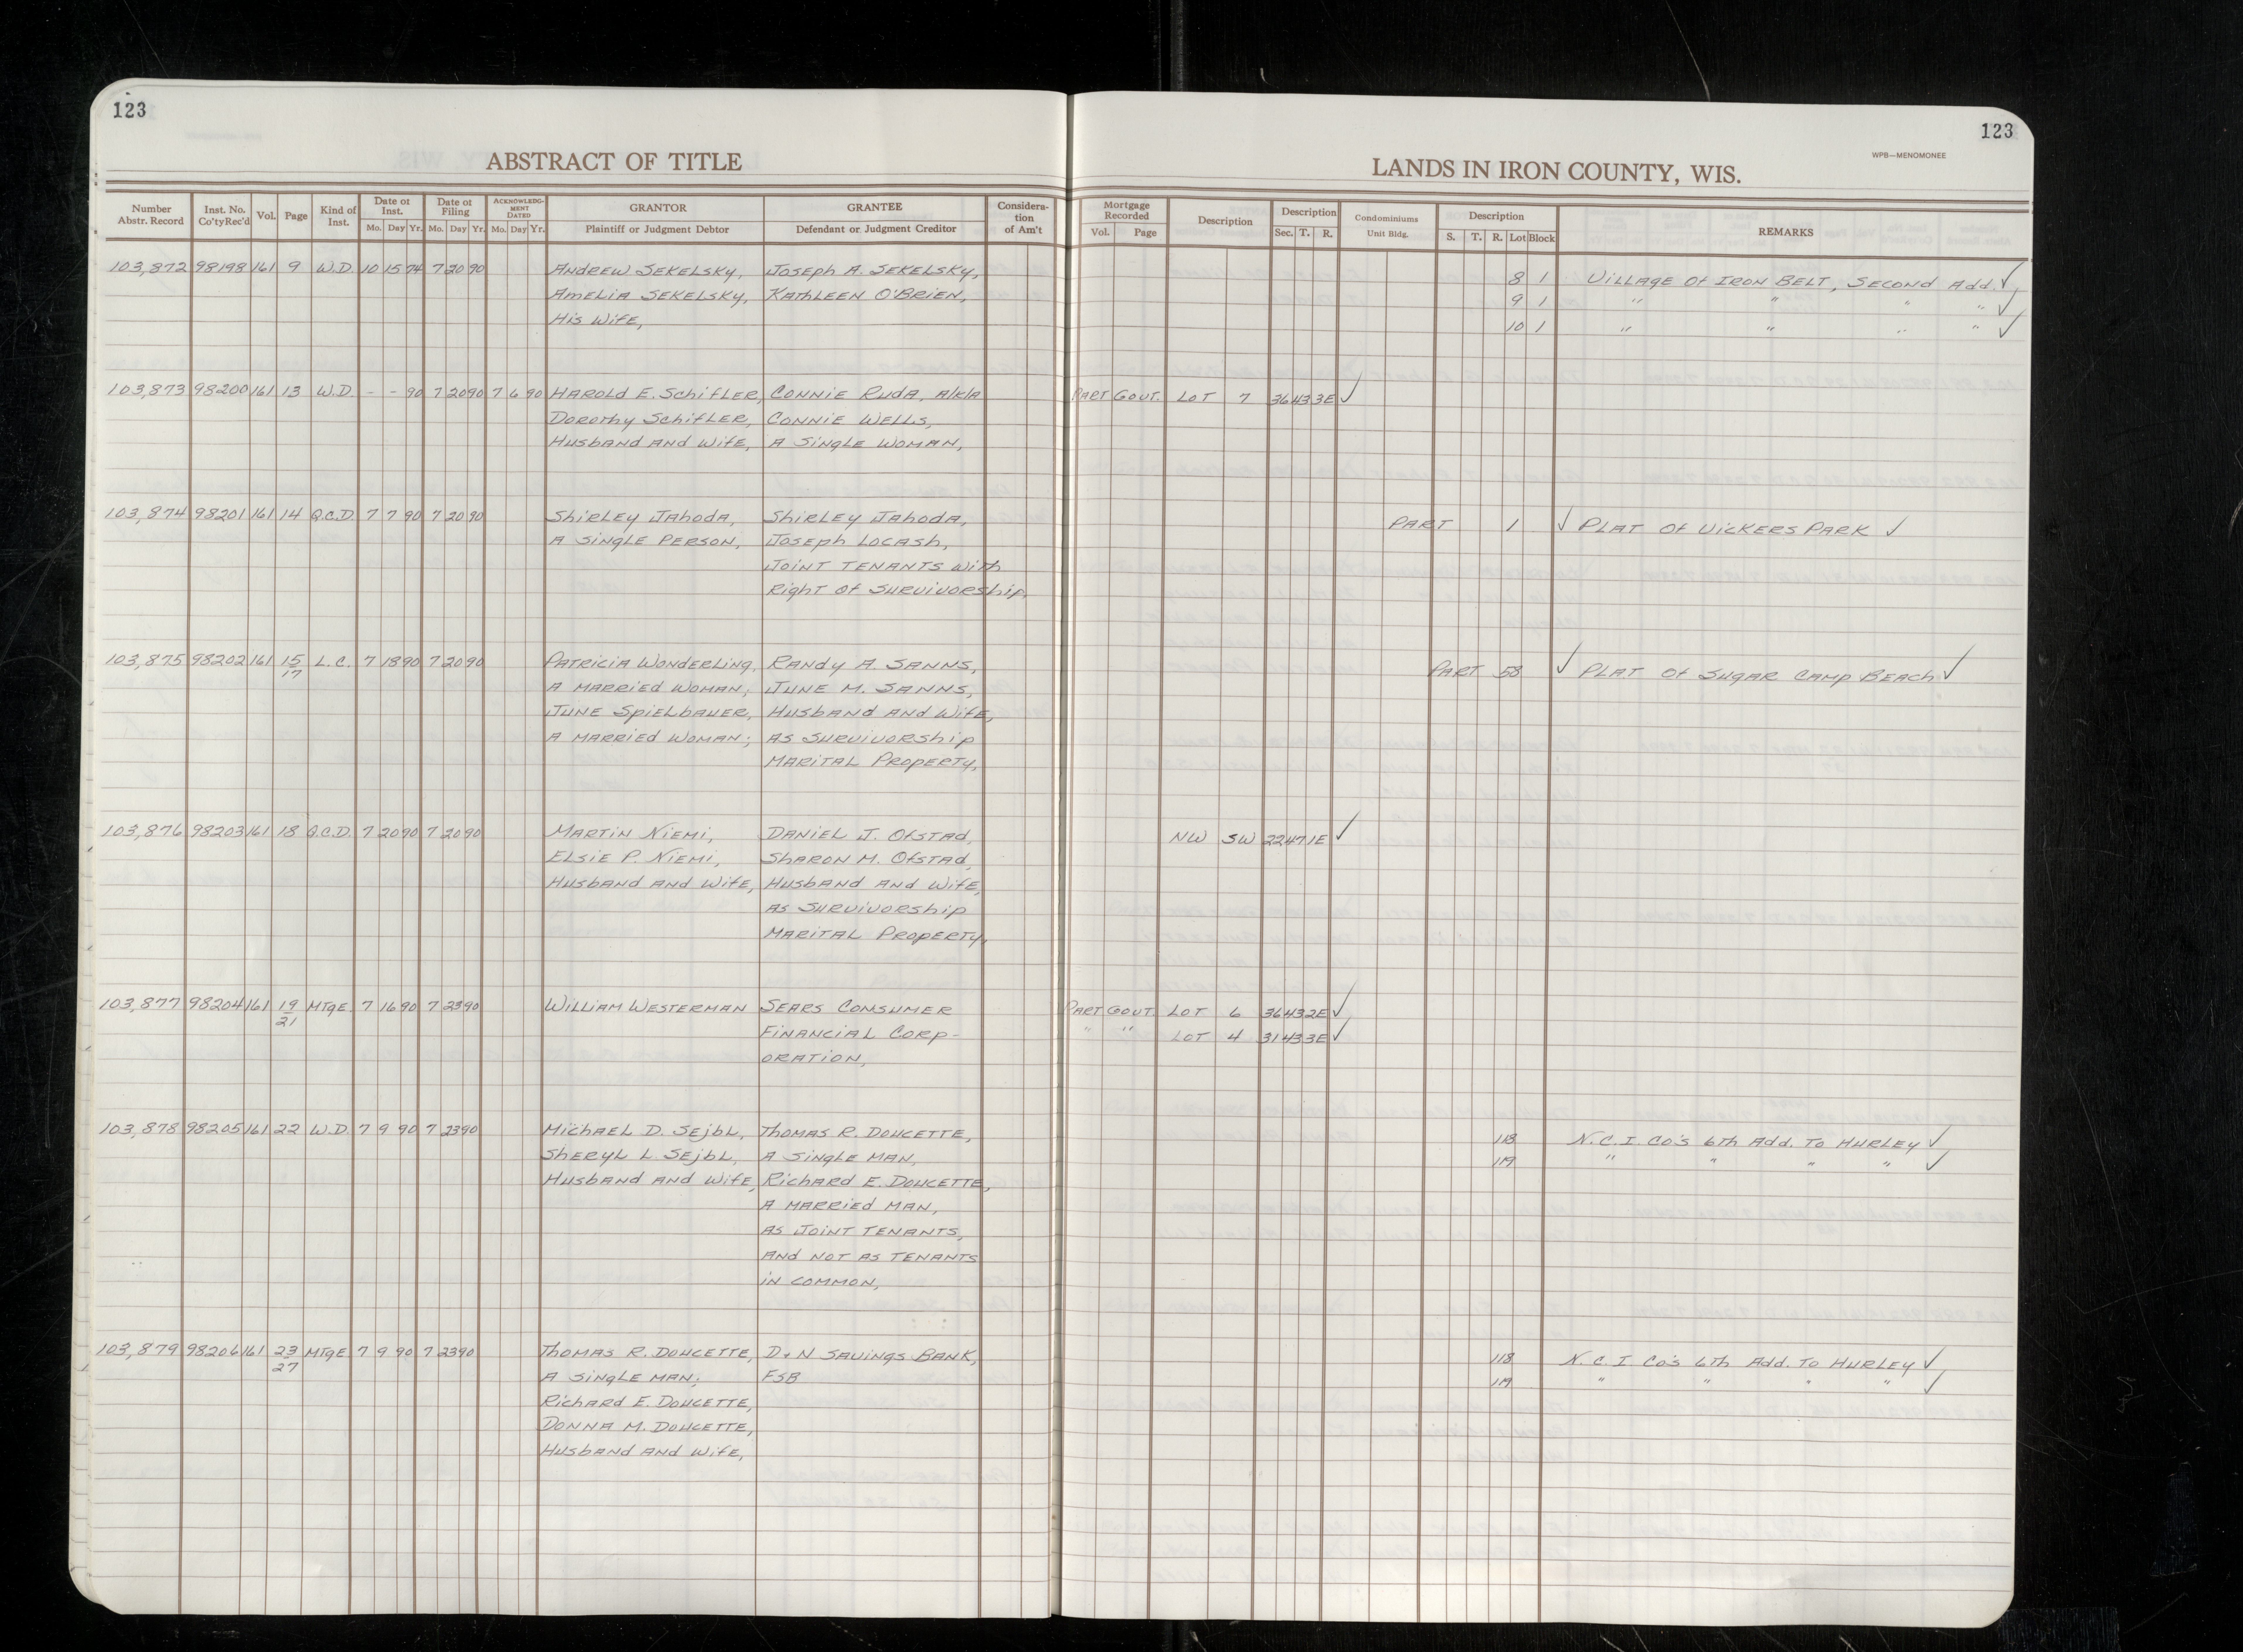 123
123
WPB—MENOMONEE
ABSTRACT OF TITLE
LANDS IN IRON COUNTY, WIS.
Number Abstr. Record | Inst. No. Co'tyRec'd | Vol. | Page | Kind of Inst. | Date of Inst. Mo. Day Yr. | Date of Filing Mo. Day Yr. | ACKNOWLEDGMENT DATED Mo. Day Yr. | GRANTOR Plaintiff or Judgment Debtor | GRANTEE Defendant or Judgment Creditor | Consideration of Am't | Mortgage Recorded Vol. Page | Description | Description Sec. T. R. | Condominiums Unit Bldg. | Description S. T. R. Lot Block | REMARKS
103,872 98198 161 9 W.D. 10 15 74 7 20 90 Andrew Sekelsky, Joseph A. Sekelsky, 8 1 Village Of Iron Belt, Second Add. ✓
Amelia Sekelsky, Kathleen O'Brien, 9 1 " " " " ✓
His Wife, 10 1 " " " " ✓
103,873 98200 161 13 W.D. - - 90 7 20 90 7 6 90 Harold E. Schifler, Connie Ruda, a/k/a Part Gov't. Lot 7 36 43 3E ✓
Dorothy Schifler, Connie Wells,
Husband and Wife, A Single Woman,
103,874 98201 161 14 Q.C.D. 7 7 90 7 20 90 Shirley Jahoda, Shirley Jahoda, Part 1 ✓ Plat Of Vickers Park ✓
A Single Person, Joseph Locash,
Joint Tenants With
Right Of Survivorship,
103,875 98202 161 15/17 L.C. 7 18 90 7 20 90 Patricia Wonderling, Randy A. Sanns, Part 58 ✓ Plat Of Sugar Camp Beach ✓
A Married Woman; June M. Sanns,
June Spielbauer, Husband and Wife,
A Married Woman; As Survivorship
Marital Property,
103,876 98203 161 18 Q.C.D. 7 20 90 7 20 90 Martin Niemi, Daniel J. Ofstad, NW SW 22 47 1E ✓
Elsie P. Niemi, Sharon M. Ofstad,
Husband and Wife, Husband and Wife,
As Survivorship
Marital Property,
103,877 98204 161 19/21 Mtge. 7 16 90 7 23 90 William Westerman Sears Consumer Part Gov't. Lot 6 36 43 2E ✓
Financial Corp- " " Lot 4 31 43 3E ✓
oration,
103,878 98205 161 22 W.D. 7 9 90 7 23 90 Michael D. Sejbl, Thomas R. Doucette, 118 N.C.I. Co's 6th Add. To Hurley ✓
Sheryl L Sejbl, A Single Man, 119 " " " " ✓
Husband and Wife, Richard E. Doucette,
A Married Man,
As Joint Tenants,
And Not As Tenants
In Common,
103,879 98206 161 23/27 Mtge. 7 9 90 7 23 90 Thomas R. Doucette, D+N Savings Bank, 118 N.C.I Co's 6th Add. To Hurley ✓
A Single Man; FSB 119 " " " " ✓
Richard E. Doucette,
Donna M. Doucette,
Husband and Wife,